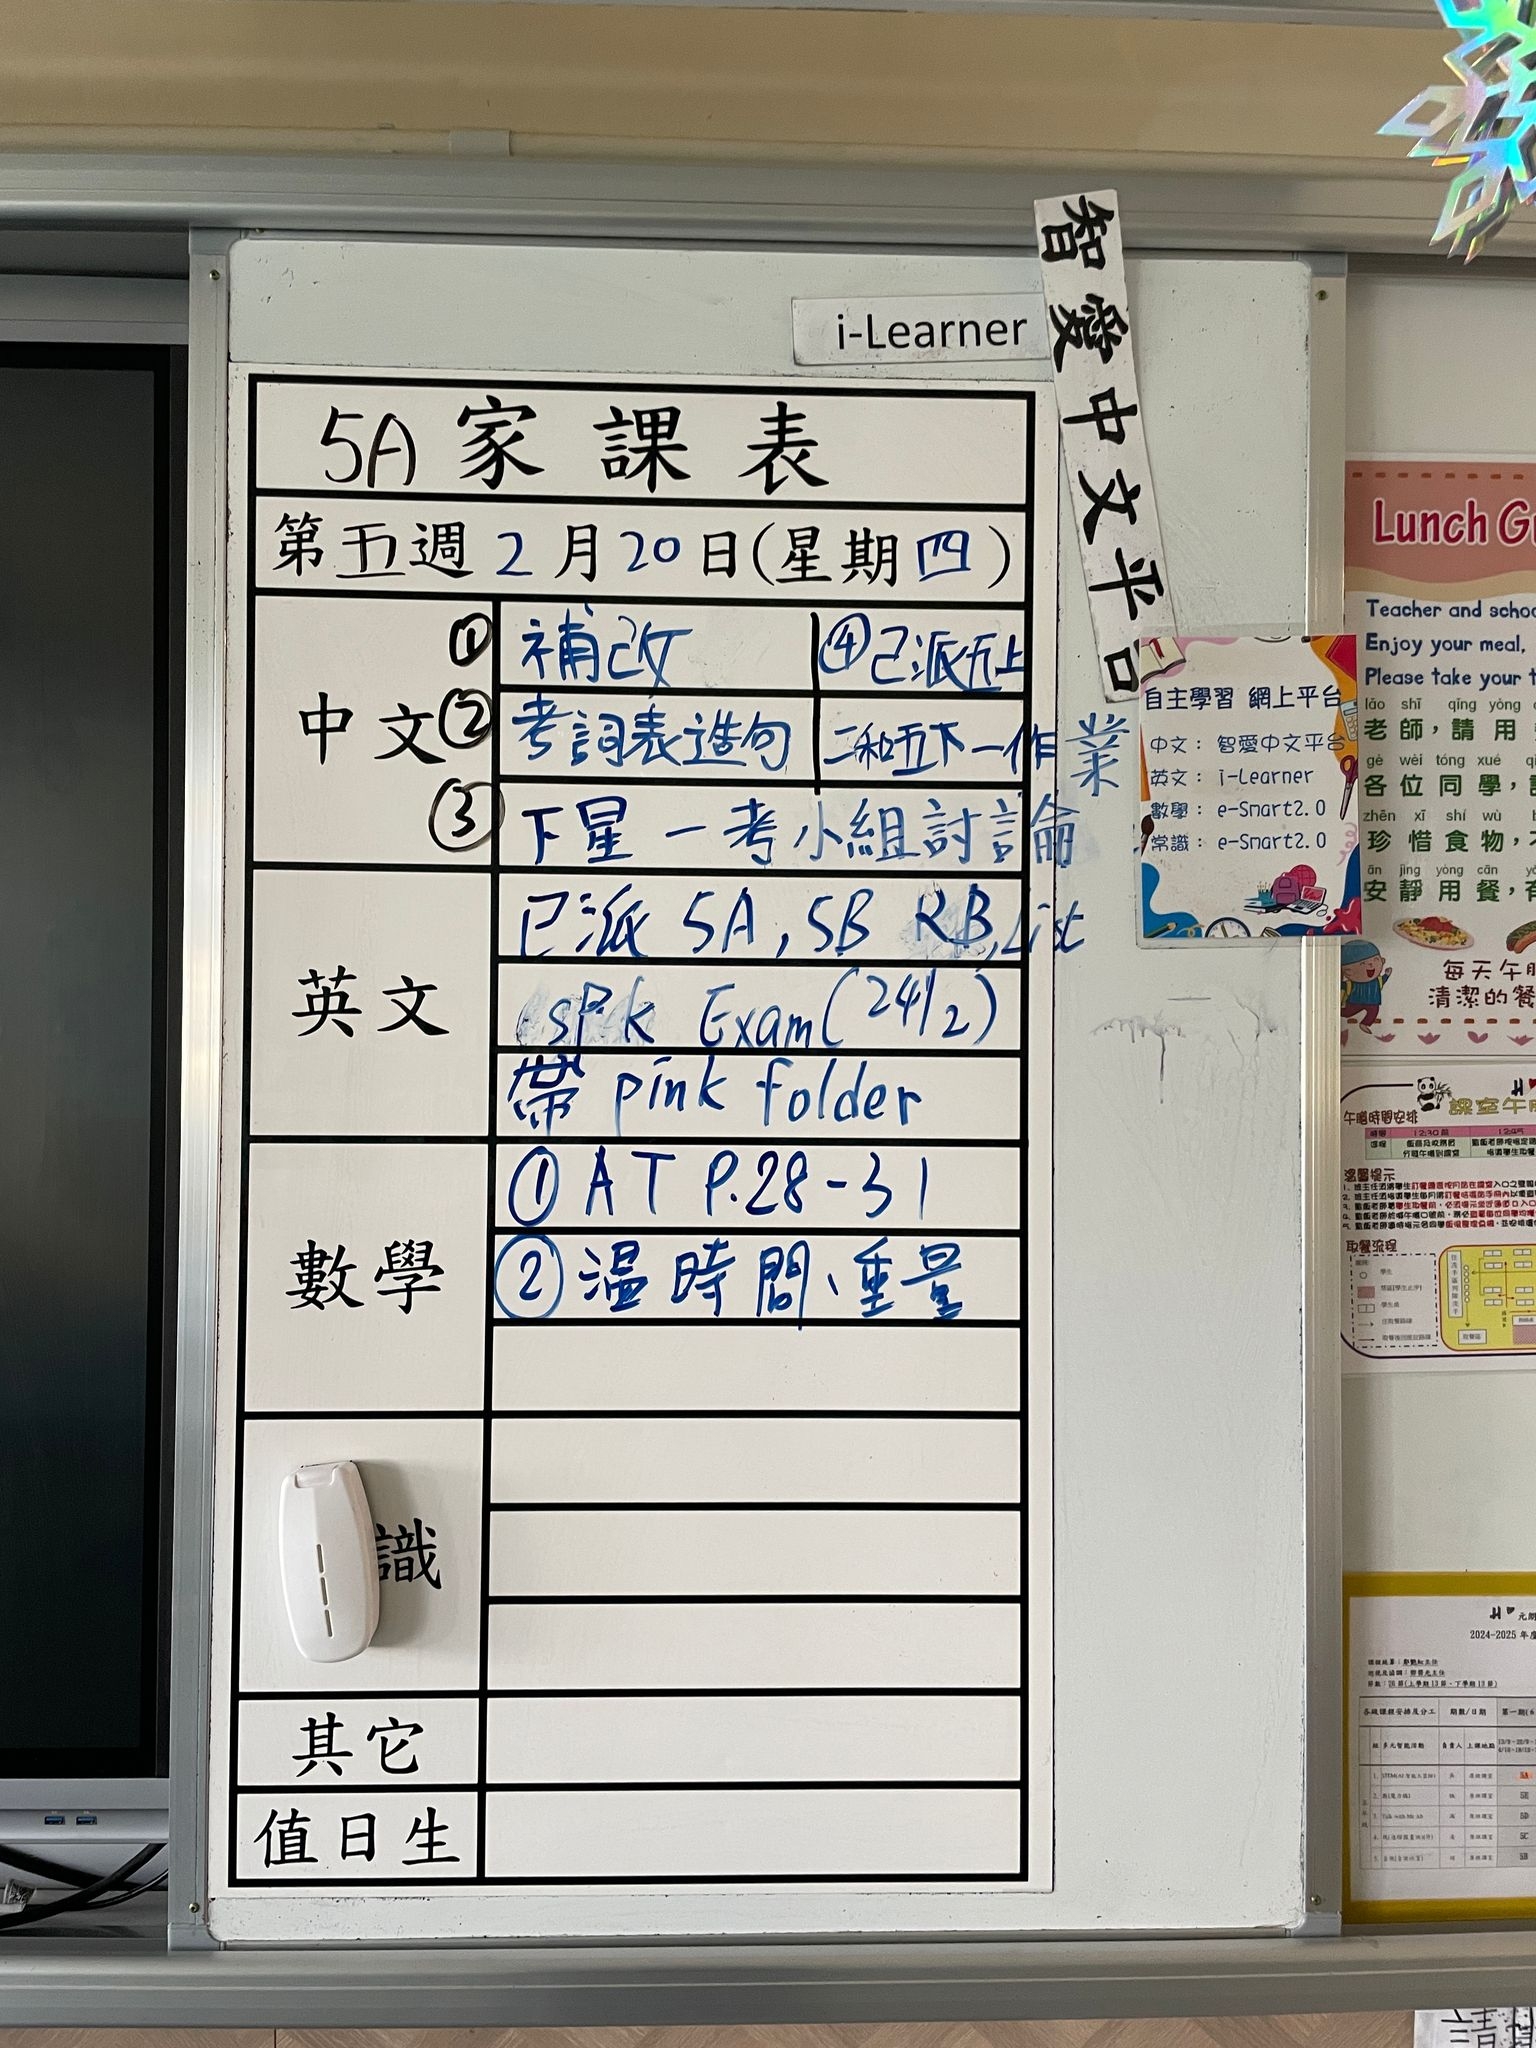 智愛中文平台
i-Learner
5A家課表
第五週2月20日(星期四)
中文
① 補改
④已派五上
② 考詞表造句
二和五下一作業
③ 下星一考小組討論
英文
已派 5A, 5B RB, List
spk Exam (24/2)
帶 pink folder
數學
① AT P.28-31
② 温時間、重量
識
其它
值日生
自主學習 網上平台
中文：智愛中文平台
英文：i-Learner
數學：e-Smart2.0
常識：e-Smart2.0
Lunch G
Teacher and schoo
Enjoy your meal,
Please take your t
lǎo shī qǐng yòng
老師，請用
gè wèi tóng xué
各位同學，
zhēn xī shí wù
珍惜食物，
ān jìng yòng cān
安靜用餐，有
每天午
清潔的餐
課室午
午膳時間安排
12:30前
12:45
溫馨提示
取餐流程
學生
2024-2025 年度
期數/日期
負責人
上課地點
第一期(6
請